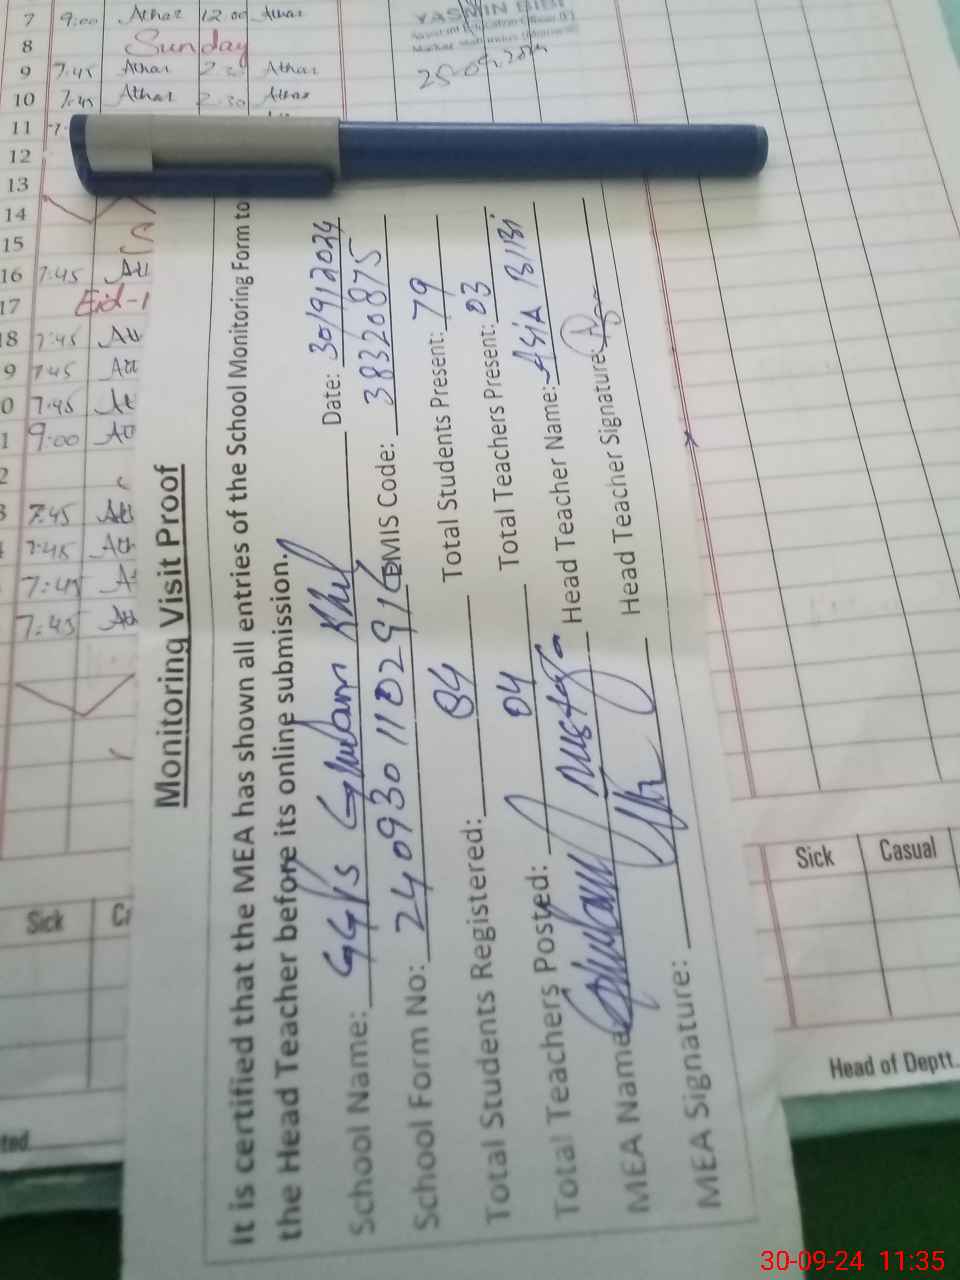 7 9:00 Athar 12:00 Athar
8 Sunday
9 7:45 Athar 2:30 Athar
10 7:45 Athar 2:30 Athar
11 7:
12
13
14
15
16 7:45 Att
17 Eid-
18 7:45 Att
9 7:45 Att
0 7:45 At
1 9:00 At
2
3 7:45 Ath
7:45 Ath
7:45 At
7:45 Ath
YASMIN BIBI
Monitoring Visit Proof
It is certified that the MEA has shown all entries of the School Monitoring Form to
the Head Teacher before its online submission.
School Name: GGPS Ghulam Khel Date: 30/9/2024
School Form No: 2409301102916 EMIS Code: 38320875
Total Students Registered: 84 Total Students Present: 79
Total Teachers Posted: 04 Total Teachers Present: 03
MEA Name Ghulam Mustafa Head Teacher Name: ASIA BIBI
MEA Signature: Head Teacher Signature:
Sick Ca
Sick Casual
Head of Deptt.
ted
30-09-24 11:35